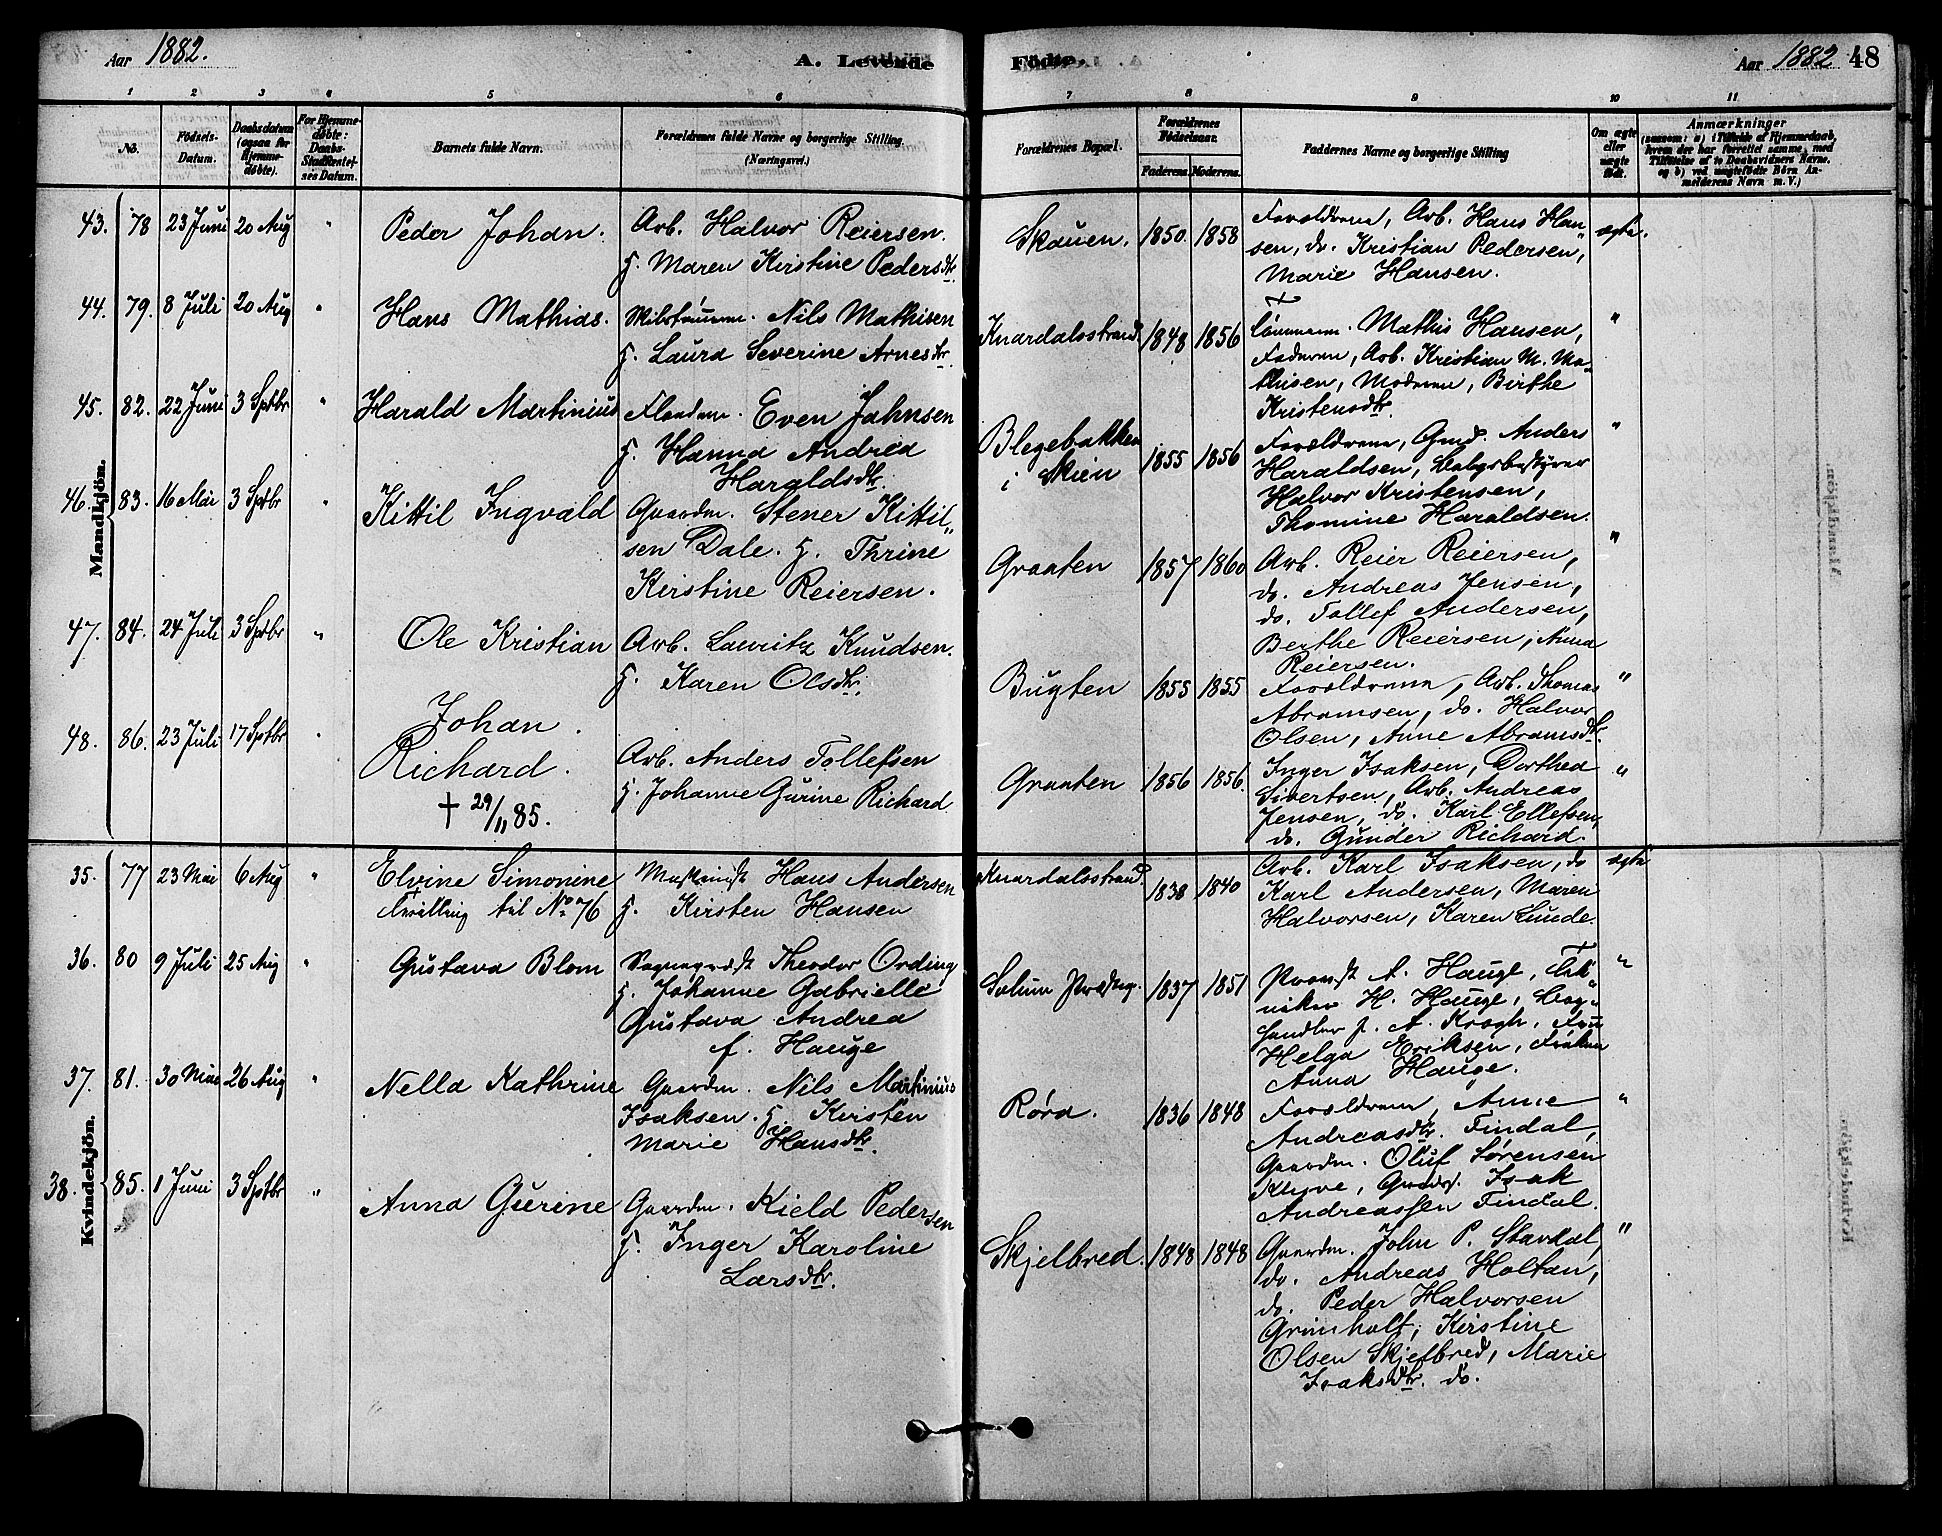 Aar 1882.
A. Levende
Fødte.
Aar 1882 48
1 2 3 4 5 6
7 8 9 10 11
No.
Fødsels-
Datum.
Daabsdatum
(ogsaa for
Hjemme-
døbte).
For Hjemme-
døbte:
Daabs-
Stadfæstel-
ses Datum.
Barnets fulde Navn.
Forældrenes fulde Navne og borgerlige Stilling
(Næringsvei.)
Forældrenes Bopæl.
Forældrenes
Fødselsaar.
Faderens. Moderens.
Faddernes Navne og borgerlige Stilling
Om ægte
eller
uægte
født.
Anmærkninger
(saasom: a) i Tilfælde af Hjemmedaab,
hvem der har forrettet samme, med
Tilføielse af to Daabsvidners Navne,
og b) ved uægtefødte Børn An-
melderens Navn m. V.)
Mandkjön.
43. 78 23 Juni 20 Aug " Peder Johan.
Arb. Halvor Reiersen.
H. Maren Kirstine Pedersdtr
Skauen. 1850. 1858
Forældrene, Arb. Hans Han-
sen, do. Kristian Pedersen,
Marie Hansen.
ægte.
44. 79. 8 Juli 20 Aug " Hans Mathias.
Nils Mathisen
H. Laura Severine Arnesdtr.
Knardalsstrand. 1848 1856
Mathis Hansen,
Faderen, Arb. Kristian M. Ma-
thisen, Moderen, Birthe
Kristensdtr.
"
45. 82. 22 Juni 3 Sptbr " Harald Martinius
Even Jahnsen
H. Hanna Andrea
Haraldsdtr.
Blegebakken
i Skien
1855 1856
Forældrene, Gmd. Anders
Haraldsen, Bolagsbestyrer
Halvor Kristensen,
Thomine Haraldsen.
"
46. 83. 16 Mai 3 Sptbr " Kittil Ingvald
Gaardm. Stener Kittil-
sen Dale. H. Thrine
Kirstine Reiersen.
Graaten 1857 1860
Arb. Reier Reiersen,
do. Andreas Jensen,
do. Tollef Andersen,
Berthe Reiersen, Anna
Reiersen.
"
47. 84. 24 Juli 3 Sptbr " Ole Kristian
Arb. Lauritz Knudsen.
H. Karen Olsdtr.
Bugten 1855 1855
Forældrene, Arb. Thomas
Abramsen, do. Halvor
Olsen, Anne Abramsdtr.
"
48. 86. 23 Juli 17 Sptbr " Johan
Richard.
† 29/11 85.
Arb. Anders Tollefsen
H. Johanne Gurine Richard
Graaten 1856 1856.
Inger Isaksen, Dorthea
Sivertsen, Arb. Andreas
Jensen, do. Karl Ellefsen,
do. Gunder Richard.
"
Kvindekjön.
35. 77 23 Mai 6 Aug " Elvine Simonine
Tvilling til No 76
Maskinist Hans Andersen
H. Kirsten Hansen
Knardalsstrand. 1838 1840
Arb. Karl Isaksen, do
Karl Andersen, Maren
Halvorsen, Karen Lunde.
ægte
36. 80 9 Juli 25 Aug " Gustava Blom
Sognepræst Theodor Ording
H. Johanne Gabrielle
Gustava Andrea
f. Hauge
Solum Prstg. 1837 1851
Provst A. Hauge, Tek-
niker H. Hauge, Bog-
handler J. A. Krogh, Fru
Helga Eriksen, Frøken
Anna Hauge.
"
37. 81. 30 Mai 26 Aug " Nella Kathrine
Gaardm. Nils Martinius
Isaksen. H. Kirsten
Marie Hansdtr.
Røra. 1836 1848
Forældrene, Anne
Andreasdtr. Findal,
Gaardm. Oluf Sørensen
Klyve, Isak
Andreassen Findal.
"
38. 85. 1 Juni 3 Sptbr " Anna Gurine
Gaardm. Kield Pedersen
H. Inger Karoline
Larsdtr.
Skjelbred. 1848 1848
Gaardm. John P. Stavdal,
do. Andreas Holtan,
do. Peder Halvorsen
Grimholt, Kirstine
Olsen Skjelbred, Marie
Isaksdtr. do.
"